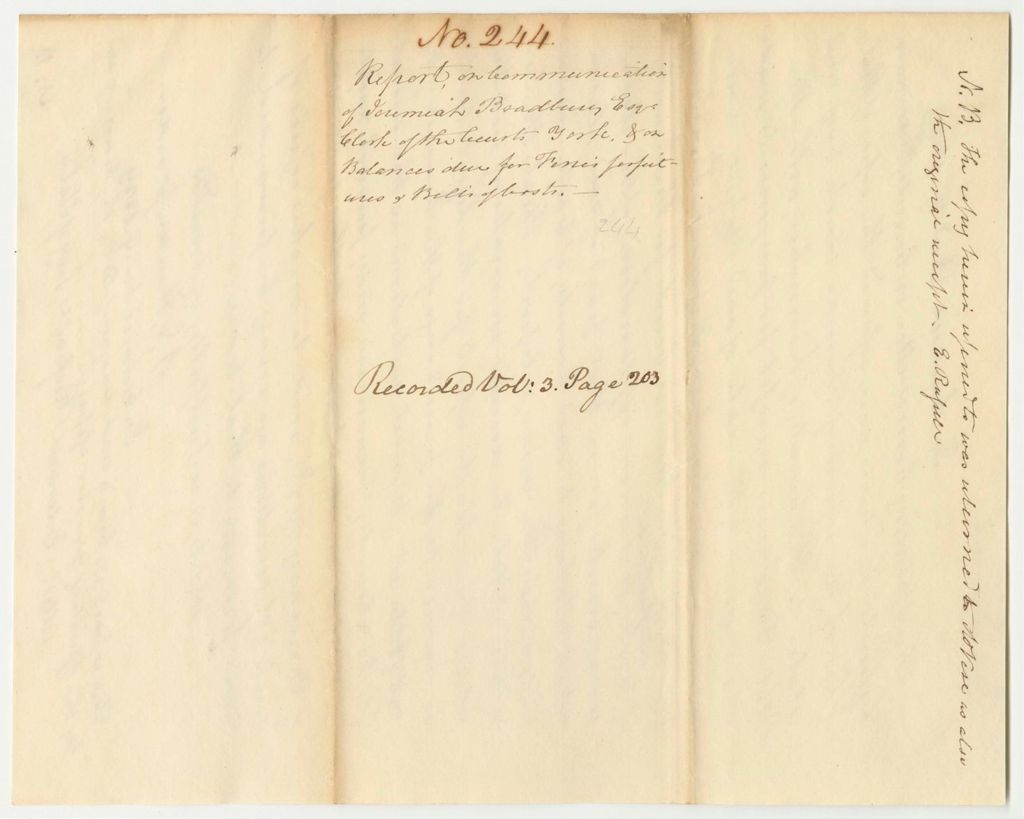 No. 244.
Report, on Communication
of Jeremiah Bradbury Esqr
Clerk of the Courts York. & on
Balances due for Fines forfeit-
ures & Bills of Costs. —
244
Recorded Vol: 3. Page 203
N. B. The copy herein referred to was returned to as also
the original receipt. E.